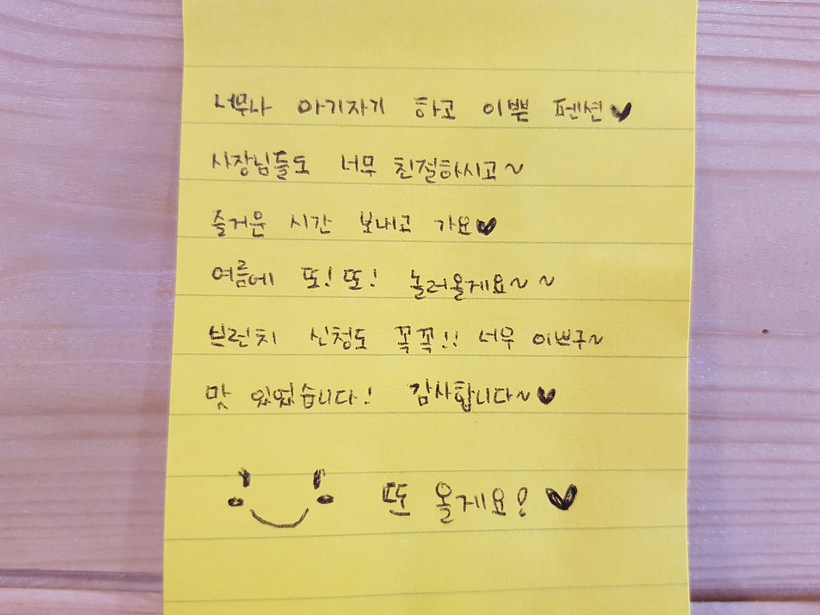 너무나 아기자기 하고 이쁜 펜션♥
사장님들도 너무 친절하시고~
즐거운 시간 보내고 가요♥
여름에 또! 또! 놀러올게요~ ~
브런치 신청도 꼭꼭!! 너무 이쁘구~
맛 있었습니다! 감사합니다~♥
또 올게요! ♥